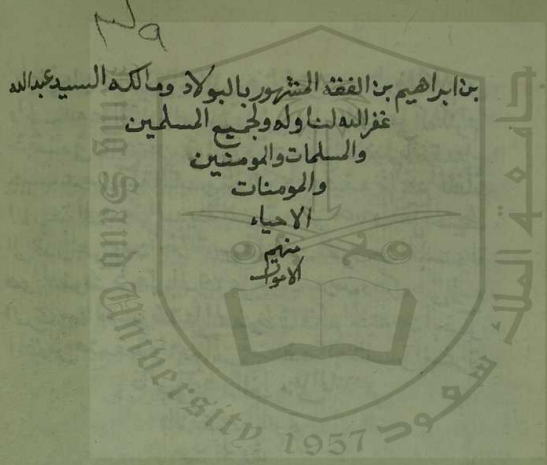 بن ابراهيم بن الفقه المشهور بالبولاد ومالكه السيد عبدالله
غفر الله لنا وله ولجميع المسلمين
والمسلمات والمومنين
والمومنات
الاحياء
منهم
الاموات
جامعة الملك سعود
King Saud University
1957